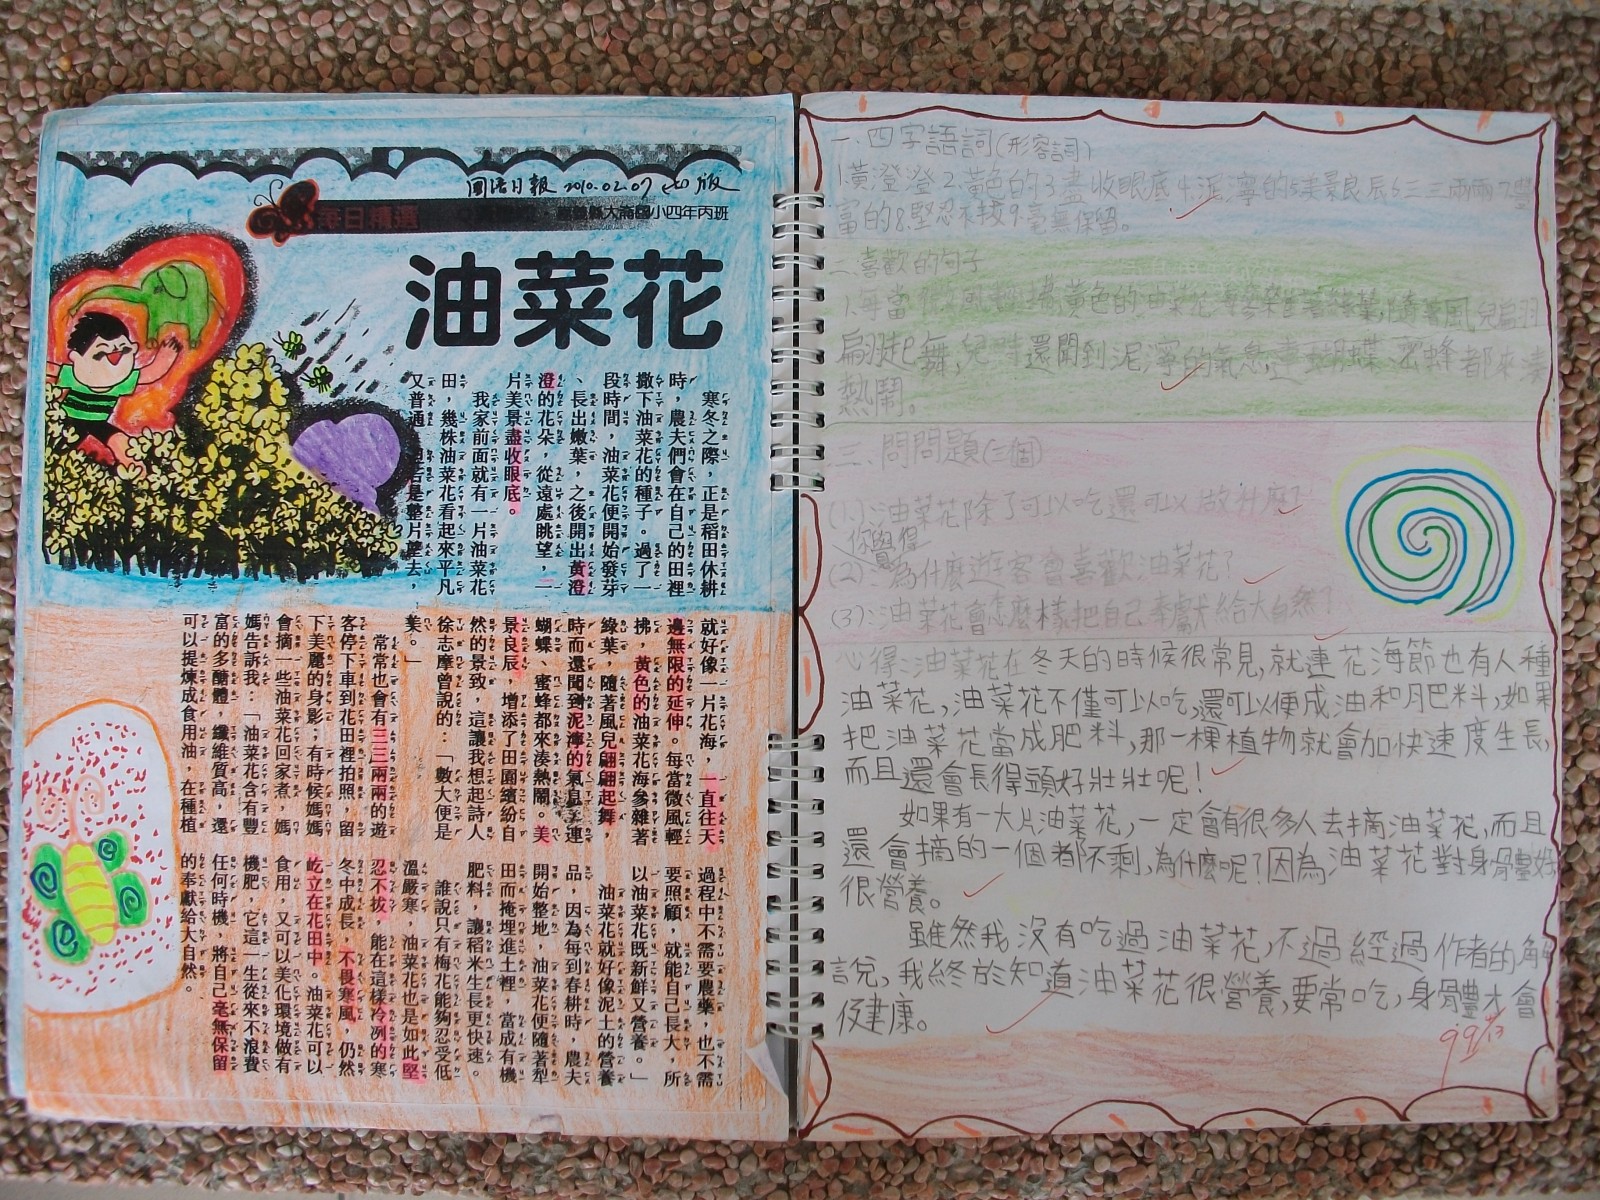 國語日報 2010.02.07 出版
每日精選
大南國小四年丙班
油菜花
寒冬之際，正是稻田休耕
時，農夫們會在自己的田裡
撒下油菜花的種子。過了一
段時間，油菜花便開始發芽
、長出嫩葉，之後開出黃澄
澄的花朵，從遠處眺望，一
片美景盡收眼底。
我家前面就有一片油菜花
田，幾株油菜花看起來平凡
又普通，但若是整片望去，
就好像一片花海，一直往天
邊無限的延伸。每當微風輕
拂，黃色的油菜花海參雜著
綠葉，隨著風兒翩翩起舞，
時而還聞到泥濘的氣息，連
蝴蝶、蜜蜂都來湊熱鬧。美
景良辰，增添了田園繽紛自
然的景致，這讓我想起詩人
徐志摩曾說的：「數大便是
美。」
常常也會有三三兩兩的遊
客停下車到花田裡拍照，留
下美麗的身影；有時候媽媽
會摘一些油菜花回家煮，媽
媽告訴我：「油菜花含有豐
富的多醣體，纖維質高，還
可以提煉成食用油，在種植
過程中不需要農藥，也不需
要照顧，就能自己長大，所
以油菜花既新鮮又營養。」
油菜花就好像泥土的營養
品，因為每到春耕時，農夫
開始整地，油菜花便隨著犁
田而掩埋進土裡，當成有機
肥料，讓稻米生長更快速。
誰說只有梅花能夠忍受低
溫嚴寒，油菜花也是如此堅
忍不拔，能在這樣冷冽的寒
冬中成長，不畏寒風，仍然
屹立在花田中。油菜花可以
食用，又可以美化環境做有
機肥，它這一生從來不浪費
任何時機，將自己毫無保留
的奉獻給大自然。
一、四字語詞(形容詞)
1.黃澄澄2.黃色的3.盡收眼底4.泥濘的5.美景良辰6.三三兩兩7.豐
富的8.堅忍不拔9.毫無保留。
二、喜歡的句子
1.每當微風輕拂,黃色的油菜花海參雜著綠葉,隨著風兒翩
翩起舞,時而還聞到泥濘的氣息,連蝴蝶、蜜蜂都來湊
熱鬧。
三、問問題(三個)
(1):油菜花除了可以吃還可以做什麼?
你覺得
(2):為什麼遊客會喜歡油菜花?
(3):油菜花會怎麼樣把自己奉獻給大自然?
心得:油菜花在冬天的時候很常見,就連花海節也有人種
油菜花,油菜花不僅可以吃,還可以便成油和肥料,如果
把油菜花當成肥料,那一棵植物就會加快速度生長,
而且還會長得頭好壯壯呢!
如果有一大片油菜花,一定會有很多人去摘油菜花,而且
還會摘的一個都不剩,為什麼呢?因為油菜花對身體好
很營養。
雖然我沒有吃過油菜花,不過經過作者的解
說,我終於知道油菜花很營養,要常吃,身體才會
健康。